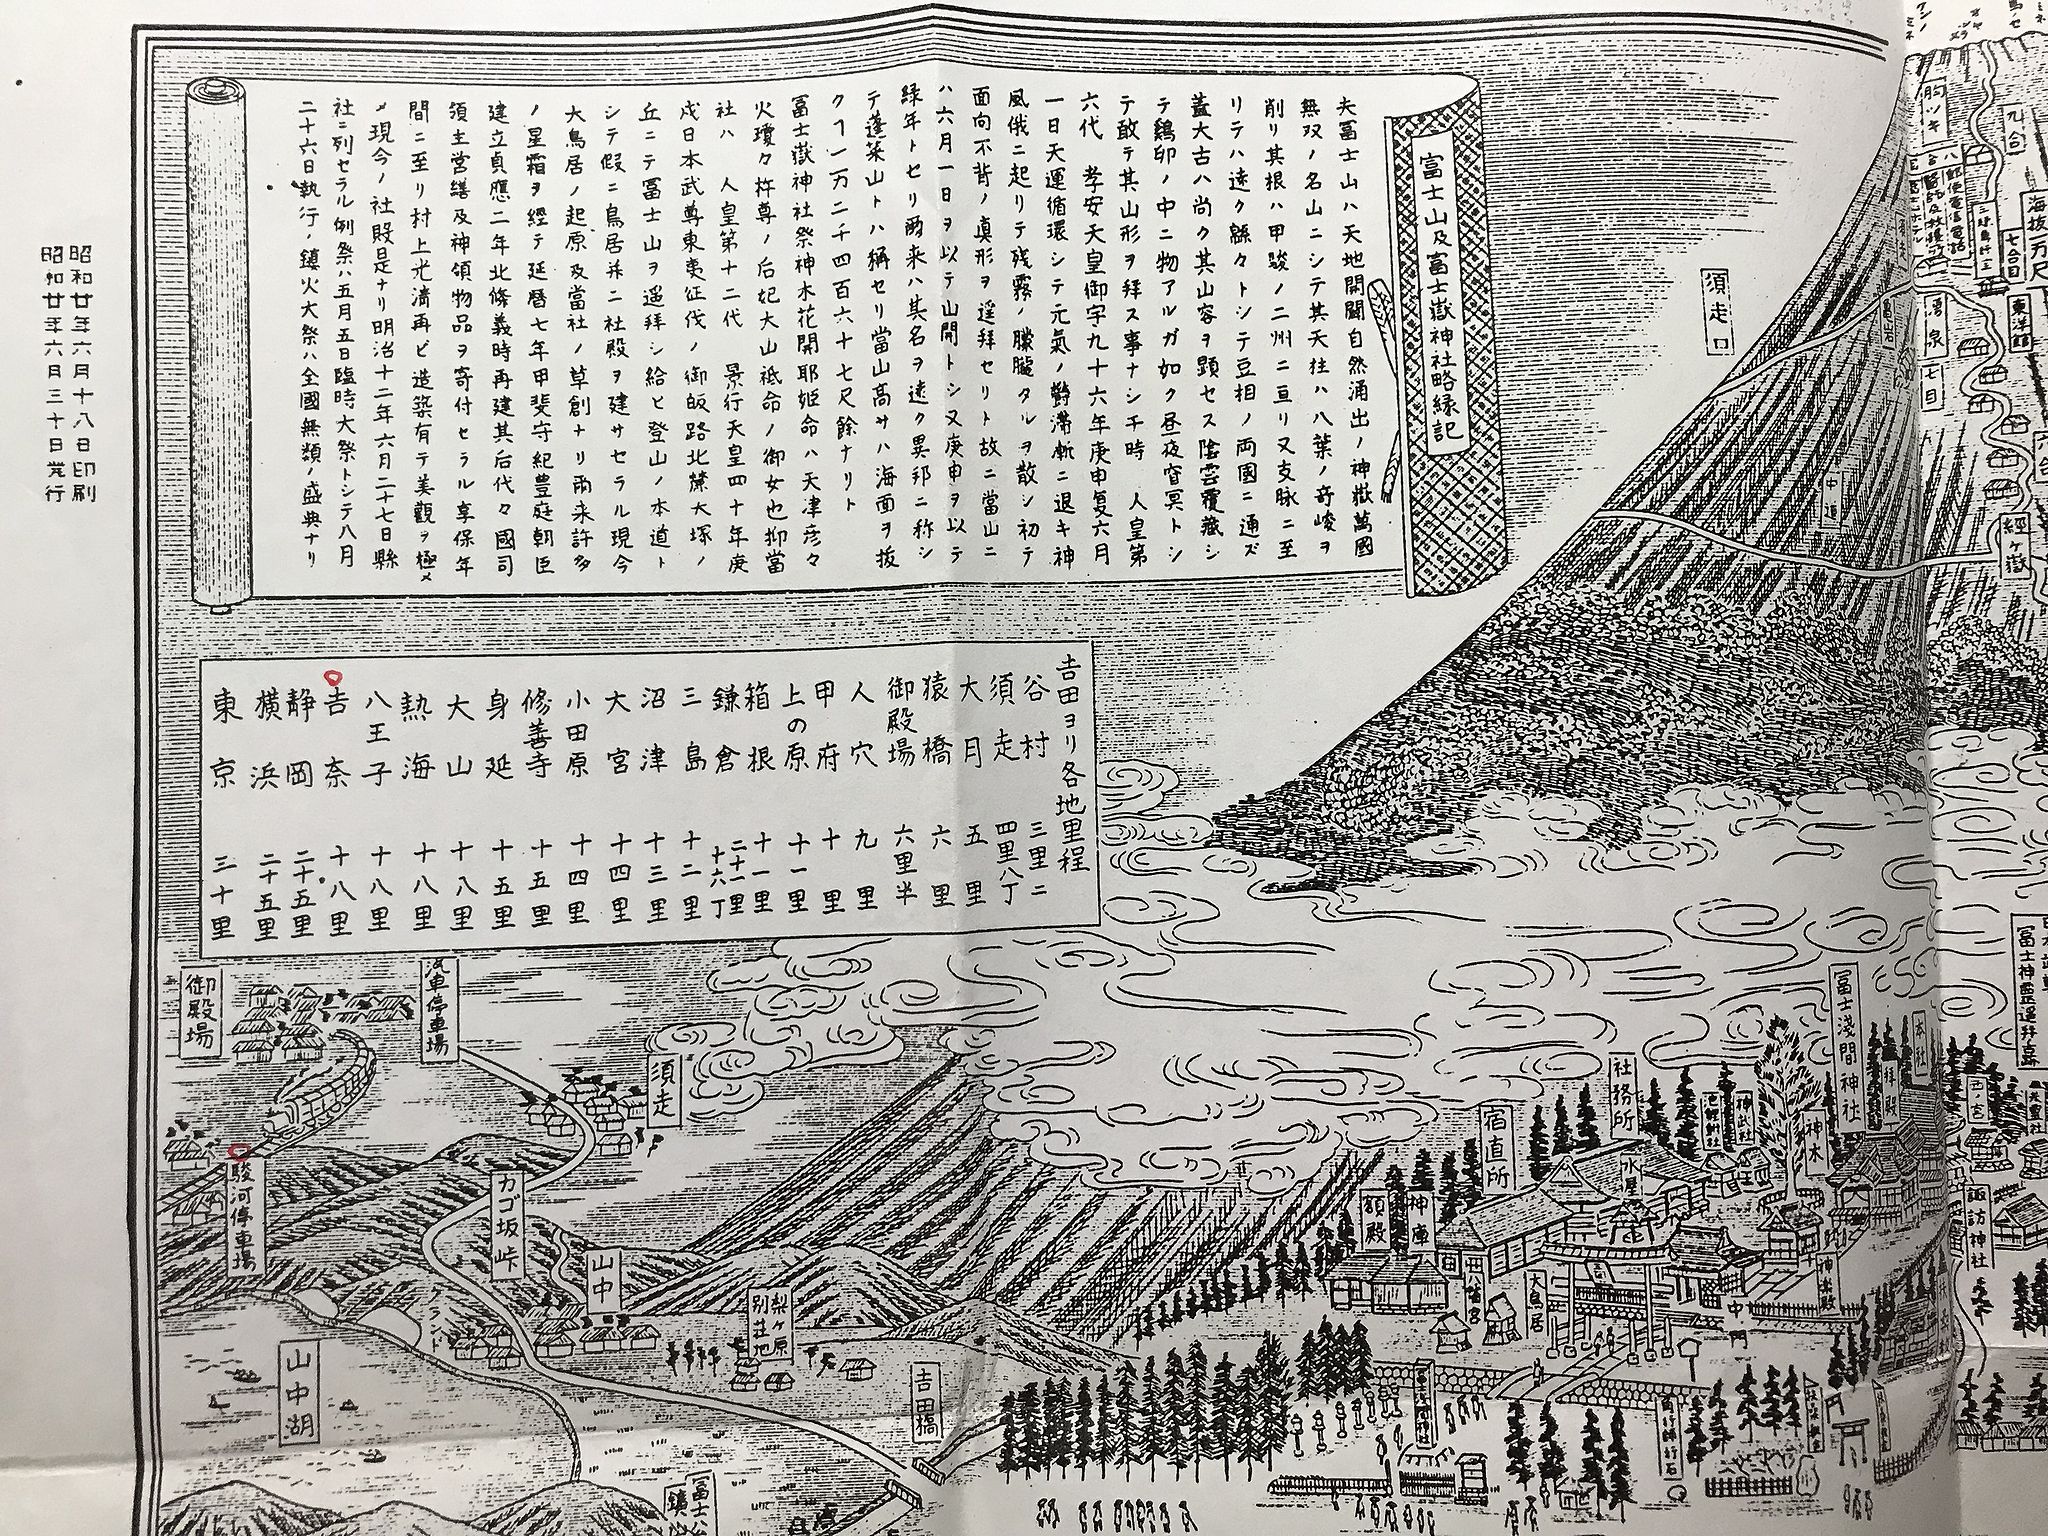 富士山及富士嶽神社略縁記
夫冨士山ハ天地開闢自然涌出ノ神嶽萬國
無双ノ名山ニシテ其天柱ハ八葉ノ奇峻ヲ
削リ其根ハ甲駿ノ二州ニ亘リ又支脉ニ至
リテハ遠ク緜々トシテ豆相ノ両國ニ通ズ
蓋大古ハ尚ク其山容ヲ顕セス陰雲覆蔵シ
テ鶏卵ノ中ニ物アルガ如ク昼夜窅冥トシ
テ敢テ其山形ヲ拜ス事ナシ干時 人皇第
六代 孝安天皇御宇九十六年庚申复六月
一日天運循環シテ元氣ノ欝滞漸ニ退キ神
風俄ニ起リテ残霧ノ朦朧タルヲ散シ初テ
面向不背ノ眞形ヲ遥拜セリト故ニ當山ニ
ハ六月一日ヲ以テ山開トシ又庚申ヲ以テ
緑年トセリ爾来ハ其名ヲ遠ク異邦ニ称シ
テ蓬萊山トハ稱セリ當山高サハ海面ヲ抜
クヿ一万二千四百六十七尺餘ナリト
冨士嶽神社祭神木花開耶姫命ハ天津彦々
火瓊々杵尊ノ后妃大山祗命ノ御女也抑當
社ハ 人皇第十二代 景行天皇四十年庚
戌日本武尊東夷征伐ノ御皈路北麓大塚ノ
丘ニテ冨士山ヲ遥拜シ給ヒ登山ノ本道ト
シテ假ニ鳥居并ニ社殿ヲ建サセラル現今
大鳥居ノ起原及當社ノ草創ナリ爾来許多
ノ星霜ヲ經テ延暦七年甲斐守紀豊庭朝臣
建立貞應二年北條義時再建其后代々國司
須主営繕及神領物品ヲ寄付セラル享保年
間ニ至リ村上光清再ビ造築有テ美觀ヲ極メ
〆現今ノ社殿是ナリ明治十二年六月二十七日縣
社ニ列セラル例祭ハ五月五日臨時大祭トシテ八月
二十六日執行ノ鎮火大祭ハ全國無類ノ盛典ナリ
昭和廿年六月十八日印刷
昭和廿年六月三十日発行
𠮷田ヨリ各地里程
谷村 三里二
須走 四里八丁
大月 五里
猿橋 六里
御殿場 六里半
人穴 九里
甲府 十里
上の原 十一里
箱根 十一里
鎌倉 二十二里十六丁
三島 十二里
沼津 十三里
大宮 十四里
小田原 十四里
修善寺 十五里
身延 十五里
大山 十八里
熱海 十八里
八王子 十八里
𠮷奈 十八里
静岡 二十五里
横浜 二十五里
東京 三十里
須走口
胸ツキ
九合
八
郵便電信電話
海抜一万尺
七合目
東洋館
湧泉
七日
六合
經ヶ嶽
中道
御殿場
汽車停車場
須走
駿河停車場
カゴ坂峠
山中
グランド
梨ヶ原
別荘地
山中湖
𠮷田橋
冨士浅間神社
本社
拜殿
社務所
宿直所
水屋
神武社
神木
額殿
神庫
八幡宮
大鳥居
中門
神楽殿
諏訪神社
冨士神霊遥拜
西ノ宮
天
角行師行石
冨士
鎮